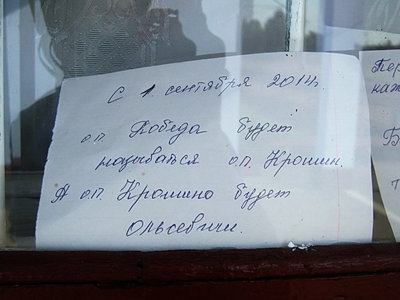 С 1 сентября 2014г.
о.п. Победа будет
называться о.п. Крошин.
А о.п. Крошино будет
Ольсевичи.
Пер
каж
Б
т